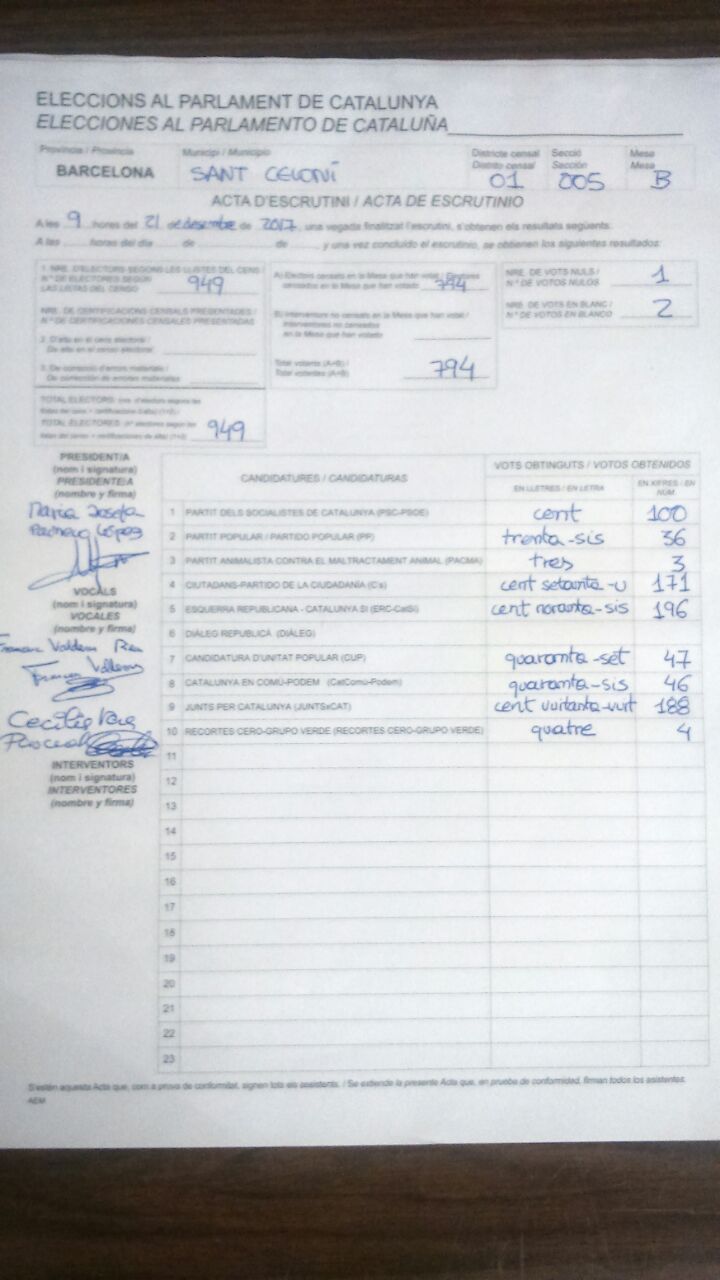 ELECCIONS AL PARLAMENT DE CATALUNYA
ELECCIONES AL PARLAMENTO DE CATALUÑA
Província / Provincia
BARCELONA
Municipi / Municipio
SANT CELONÍ
Districte censal
Distrito censal
01
Secció
Sección
005
Mesa
Mesa
B
ACTA D'ESCRUTINI / ACTA DE ESCRUTINIO
A les 9 hores del 21 de desembre de 2017, una vegada finalitzat l'escrutini, s'obtenen els resultats següents:
A las hores del día de de y una vez concluido el escrutinio, se obtienen los siguientes resultados:
1. NRE. D'ELECTORS SEGONS LES LLISTES DEL CENS /
N.º DE ELECTORES SEGÚN
LAS LISTAS DEL CENSO
949
NRE. DE CERTIFICACIONS CENSALS PRESENTADES /
N.º DE CERTIFICACIONES CENSALES PRESENTADAS
2. D'alta en el cens electoral /
De alta en el censo electoral
3. De correcció d'errors materials /
De corrección de errores materiales
TOTAL ELECTORS
TOTAL ELECTORES
949
A) Electors censats en la Mesa que han votat / Electores
censados en la Mesa que han votado
794
B) Interventors no censats en la Mesa que han votat /
Interventores no censados
en la Mesa que han votado
Total votants (A+B) /
Total votantes (A+B)
794
NRE. DE VOTS NULS /
N.º DE VOTOS NULOS
1
NRE. DE VOTS EN BLANC /
N.º DE VOTOS EN BLANCO
2
PRESIDENT/A
(nom i signatura)
PRESIDENTE/A
(nombre y firma)
Maria Josefa
Pacheco López
VOCALS
(nom i signatura)
VOCALES
(nombre y firma)
INTERVENTORS
(nom i signatura)
INTERVENTORES
(nombre y firma)
CANDIDATURES / CANDIDATURAS
VOTS OBTINGUTS / VOTOS OBTENIDOS
EN LLETRES / EN LETRA
EN XIFRES / EN NÚM.
1 PARTIT DELS SOCIALISTES DE CATALUNYA (PSC-PSOE) cent 100
2 PARTIT POPULAR / PARTIDO POPULAR (PP) trenta-sis 36
3 PARTIT ANIMALISTA CONTRA EL MALTRACTAMENT ANIMAL (PACMA) tres 3
4 CIUTADANS-PARTIDO DE LA CIUDADANÍA (C's) cent setanta-u 171
5 ESQUERRA REPUBLICANA - CATALUNYA SÍ (ERC-CatSí) cent noranta-sis 196
6 DIÀLEG REPUBLICÀ (DIÀLEG)
7 CANDIDATURA D'UNITAT POPULAR (CUP) quaranta-set 47
8 CATALUNYA EN COMÚ-PODEM (CatComú-Podem) quaranta-sis 46
9 JUNTS PER CATALUNYA (JUNTSxCAT) cent vuitanta-vuit 188
10 RECORTES CERO-GRUPO VERDE (RECORTES CERO-GRUPO VERDE) quatre 4
11
12
13
14
15
16
17
18
19
20
21
22
23
S'estén aquesta Acta que, com a prova de conformitat, signen tots els assistents. / Se extiende la presente Acta que, en prueba de conformidad, firman todos los asistentes.